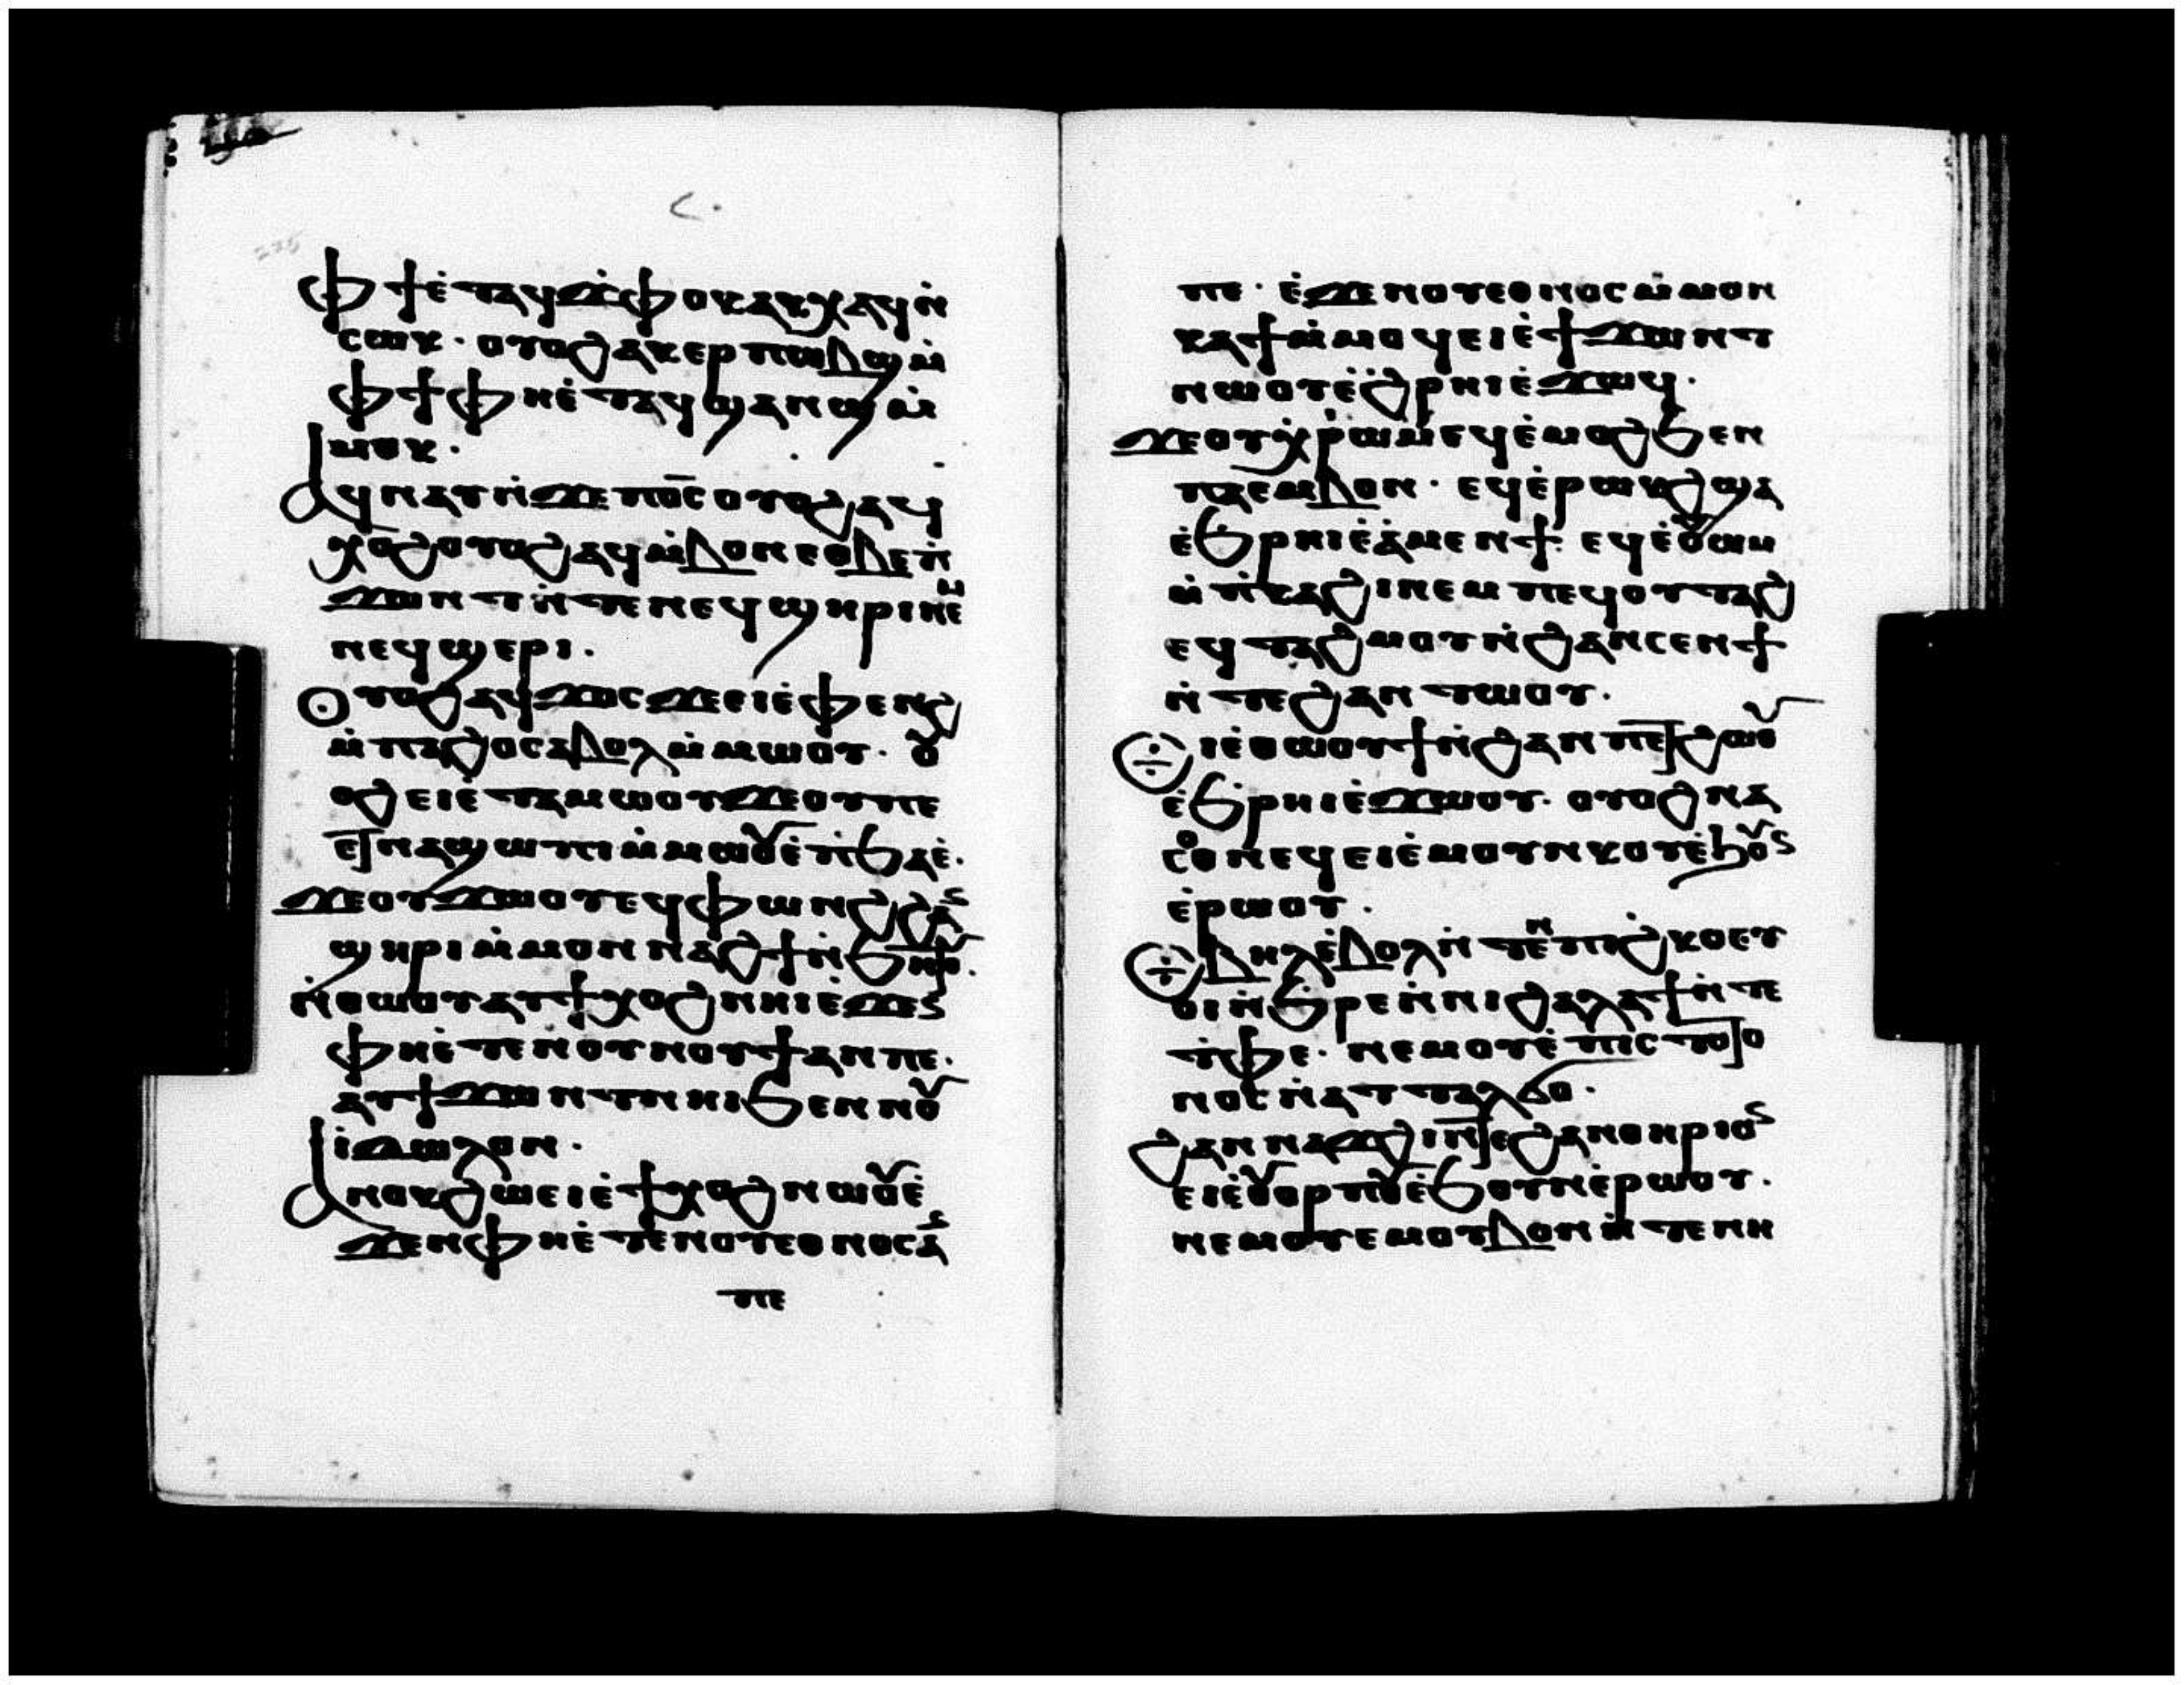 ⲫϯ ⲉ̀ⲧⲁϥϫ̀ⲫⲟⲕ ⲁⲕⲭⲁϥ ⲛ̀
ⲥⲱⲕ· ⲟⲩⲟϩ ⲁⲕⲉⲣⲡⲱⲃϣ ⲙ̀
ⲫϯ ⲫⲏⲉ̀ⲧⲁϥϣⲁⲛϣ ⲙ̀
ⲙⲟⲕ·
ⲁϥⲛⲁⲩ ⲛ̀ϫⲉ ⲡⲟ̅ⲥ̅ ⲟⲩⲟϩ ⲁϥ
ⲭⲟϩ ⲟⲩⲟϩ ⲁϥⲙ̀ⲃⲟⲛ ⲉⲑⲃⲉ ⲡ̀
ϫⲱⲛⲧ ⲛ̀ⲧⲉ ⲛⲉϥϣⲏⲣⲓ ⲛⲉⲙ
ⲛⲉϥϣⲉⲣⲓ·
ⲟⲩⲟϩ ⲁϥϫⲟⲥ ϫⲉ ⲉⲓⲉ̀ⲫⲉⲛϩ
ⲙ̀ⲡⲁϩⲟ ⲥⲁⲃⲟⲗ ⲙ̀ⲙⲱⲟⲩ· ⲟⲩ
ⲟϩ ⲉⲓⲉ̀ⲧⲁⲙⲱⲟⲩ ϫⲉ ⲟⲩ ⲡⲉ
ⲉⲑⲛⲁϣⲱⲡⲓ ⲙ̀ⲙⲱⲟⲩ ⲉ̀ⲡ̀ϧⲁⲉ̀·
ϫⲉ ⲟⲩϫⲱⲟⲩ ⲉϥⲫⲱⲛϩ ϩⲁⲛ
ϣⲏⲣⲓ ⲙ̀ⲙⲟⲛ ⲛⲁϩϯ ⲛ̀ϧⲏⲧⲟⲩ·
ⲛ̀ⲑⲱⲟⲩ ⲁⲩϯⲭⲟϩ ⲛⲏⲓ ⲉ̀ϫⲉⲛ
ⲫⲏⲉ̀ⲧⲉ ⲛⲟⲩⲛⲟⲩϯ ⲁⲛ ⲡⲉ·
ⲁⲩϯϫⲱⲛⲧ ⲛⲏⲓ ϧⲉⲛ ⲛⲟⲩ
ⲓ̀ⲇⲱⲗⲟⲛ·
ⲁⲛⲟⲕ ϩⲱ ⲉⲓⲉ̀ϯⲭⲟϩ ⲛⲱⲟⲩ ⲉ̀
ϫⲉⲛ ⲫⲏⲉ̀ⲧⲉ ⲛⲟⲩⲉⲑⲛⲟⲥ ⲁⲛ
ⲡⲉ
ⲡⲉ· ⲉ̀ϫⲉⲛ ⲟⲩⲉⲑⲛⲟⲥ ⲙ̀ⲙⲟⲛ
ⲕⲁϯ ⲙ̀ⲙⲟϥ ⲉⲓⲉ̀ϯϫⲱⲛⲧ
ⲛⲱⲟⲩ ⲉ̀ϩ̀ⲣⲏⲓ ⲉ̀ϫⲱϥ·
ϫⲉ ⲟⲩⲭ̀ⲣⲱⲙ ⲉϥⲉ̀ⲙⲟϩ ϧⲉⲛ
ⲡⲁⲉⲙⲃⲟⲛ· ⲉϥⲉ̀ⲣⲱⲕϩ ϣⲁ
ⲉ̀ϧⲣⲏⲓ ⲉ̀ⲁ̀ⲙⲉⲛϯ· ⲉϥⲉ̀ⲟⲩⲱⲙ
ⲙ̀ⲡ̀ⲕⲁϩⲓ ⲛⲉⲙ ⲡⲉϥⲟⲩⲧⲁϩ
ⲉϥⲧⲁϩⲙⲟⲩ ⲛ̀ϩⲁⲛⲥⲉⲛϯ
ⲛ̀ⲧⲉ ϩⲁⲛⲧⲱⲟⲩ·
ⲉⲓⲉ̀ⲑⲱⲟⲩϯ ⲛ̀ϩⲁⲛⲡⲉⲧϩⲱⲟⲩ
ⲉ̀ϧ̀ⲣⲏⲓ ⲉ̀ϫⲱⲟⲩ· ⲟⲩⲟϩ ⲛⲁ
ⲥⲟⲑⲛⲉϥ ⲉⲓⲉ̀ⲙⲟⲩⲛⲕⲟⲩ ⲉ̀ϧⲟⲩⲛ
ⲉ̀ⲣⲱⲟⲩ·
ⲃⲏⲗ ⲉ̀ⲃⲟⲗ ⲛ̀ⲧⲉⲛ ⲡⲓϩ̀ⲕⲟ ⲉⲩ
ⲟⲓ ⲛ̀ϧ̀ⲣⲉ ⲛ̀ⲛⲓϩⲁⲗⲁϯ ⲛ̀ⲧⲉ
ⲧ̀ⲫⲉ· ⲛⲉⲙ ⲟⲩⲉ̀ⲡⲓⲥⲧⲟⲑⲟ
ⲛⲟⲥ ⲛ̀ⲁⲧⲧⲁⲗϭⲟ·
ϩⲁⲛⲛⲁϫϩⲓ ⲛ̀ⲧⲉ ϩⲁⲛⲑⲏⲣⲓⲟⲛ
ⲉⲓⲉ̀ⲟⲩⲟⲣⲡⲟⲩ ⲉ̀ϧⲟⲩⲛ ⲉ̀ⲣⲱⲟⲩ·
ⲛⲉⲙ ⲟⲩⲉⲙⲟⲩⲃⲟⲛ ⲛ̀ⲧⲉ ⲛⲏ